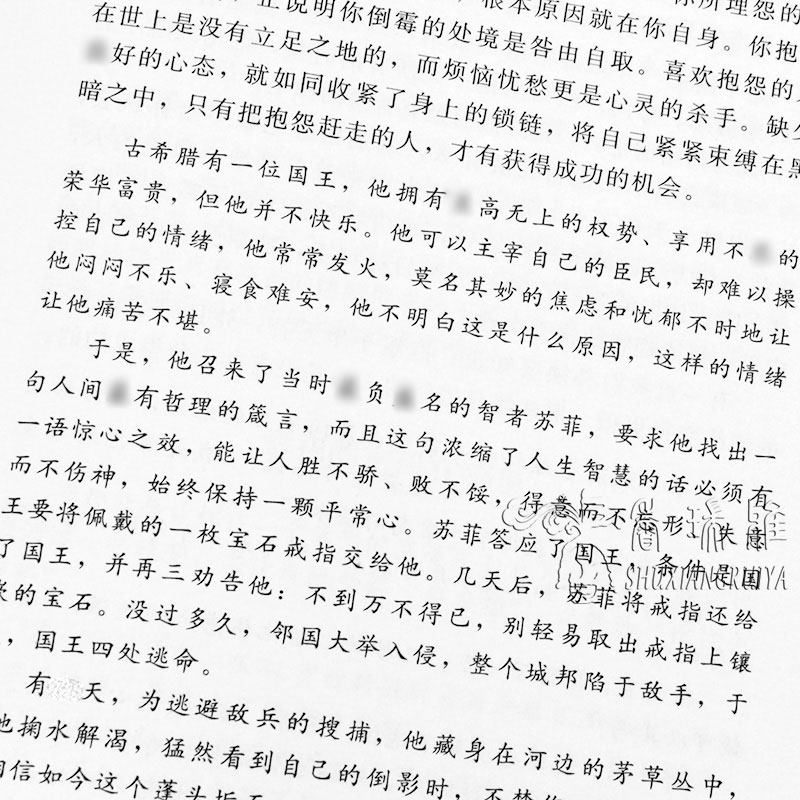 正说明你倒霉的处境是咎由自取。喜欢抱怨的
根本原因就在你自身。你抱
你所埋怨的
在世上是没有立足之地的，而烦恼忧愁更是心灵的杀手。缺少
好的心态，就如同收紧了身上的锁链，将自己紧紧束缚在黑
暗之中，只有把抱怨赶走的人，才有获得成功的机会。
古希腊有一位国王，他拥有 高无上的权势、享用不 的
荣华富贵，但他并不快乐。他可以主宰自己的臣民，却难以操
控自己的情绪，他常常发火，莫名其妙的焦虑和忧郁不时地让
他闷闷不乐、寝食难安，他不明白这是什么原因，这样的情绪
让他痛苦不堪。
于是，他召来了当时 负 名的智者苏菲，要求他找出一
句人间 有哲理的箴言，而且这句浓缩了人生智慧的话必须有
一语惊心之效，能让人胜不骄、败不馁，得意而不忘形、失意
而不伤神，始终保持一颗平常心。苏菲答应了国王，条件是国
王要将佩戴的一枚宝石戒指交给他。几天后，苏菲将戒指还给
了国王，并再三劝告他：不到万不得已，别轻易取出戒指上镶
嵌的宝石。没过多久，邻国大举入侵，整个城邦陷于敌手，于
，国王四处逃命。
有 天，为逃避敌兵的搜捕，他藏身在河边的茅草丛中，
他掬水解渴，猛然看到自己的倒影时，不禁
相信如今这个蓬头垢
书香瑞雅
SHUXIANGRUIYA